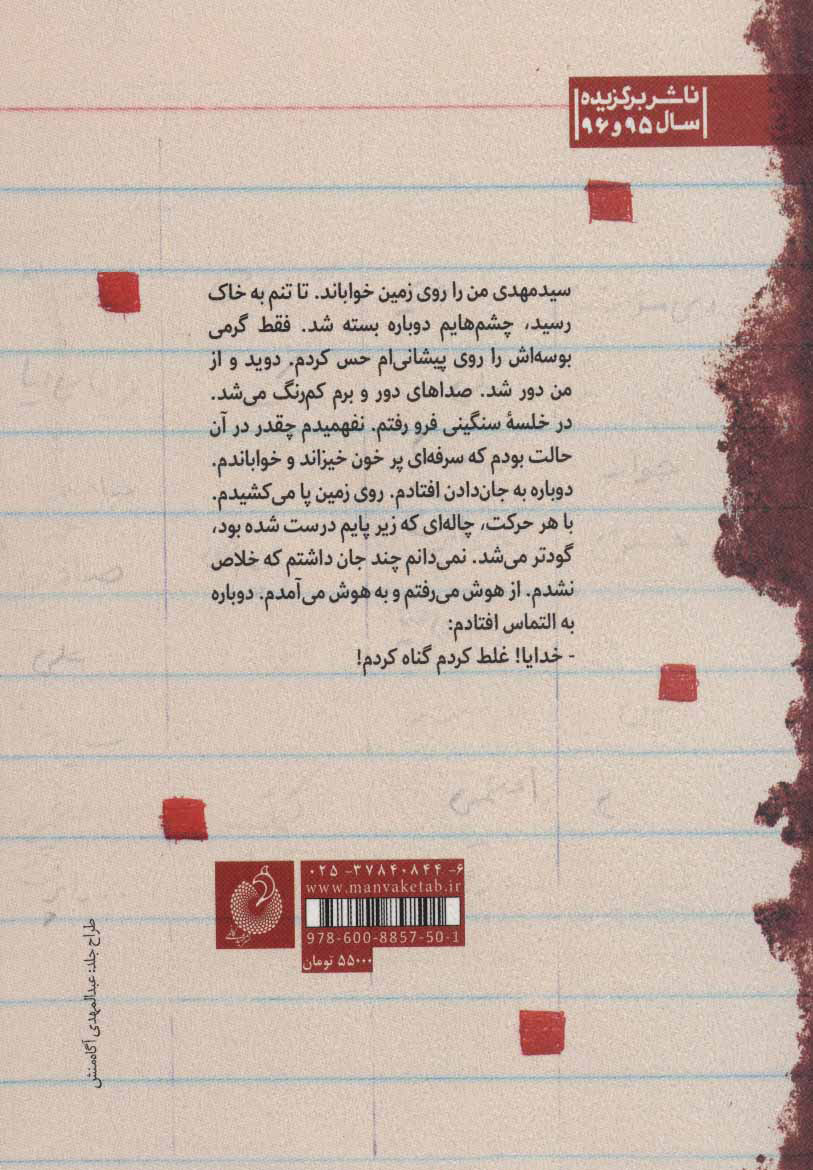 ناشر برگزیده
سال ۹۵ و ۹۶
سیدمهدی من را روی زمین خواباند. تا تنم به خاک
رسید، چشم‌هایم دوباره بسته شد. فقط گرمی
بوسه‌اش را روی پیشانی‌ام حس کردم. دوید و از
من دور شد. صداهای دور و برم کم‌رنگ می‌شد.
در خلسهٔ سنگینی فرو رفتم. نفهمیدم چقدر در آن
حالت بودم که سرفه‌ای پر خون خیزاند و خواباندم.
دوباره به جان‌دادن افتادم. روی زمین پا می‌کشیدم.
با هر حرکت، چاله‌ای که زیر پایم درست شده بود،
گودتر می‌شد. نمی‌دانم چند جان داشتم که خلاص
نشدم. از هوش می‌رفتم و به هوش می‌آمدم. دوباره
به التماس افتادم:
- خدایا! غلط کردم گناه کردم!
۰۲۵ -۳۷۸۴۰۸۴۴ -۶
www.manvaketab.ir
978-600-8857-50-1
۵۵۰۰۰ تومان
طراح جلد: عبدالمهدی آگاه‌منش